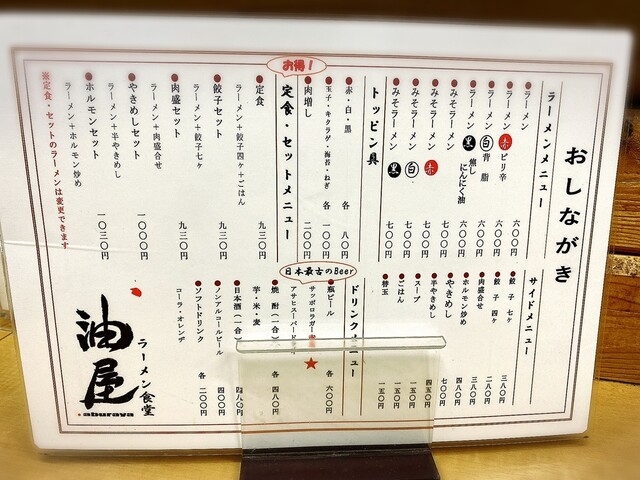 おしながき
ラーメンメニュー
ラーメン 六〇〇円
ラーメン 赤 ピリ辛 六〇〇円
ラーメン 白 背脂 六〇〇円
ラーメン 黒 焦しにんにく油 六〇〇円
みそラーメン 七〇〇円
みそラーメン 赤 七〇〇円
みそラーメン 白 七〇〇円
みそラーメン 黒 七〇〇円
トッピン具
赤・白・黒 各 八〇円
玉子・キクラゲ・海苔・ねぎ 各 一〇〇円
肉増し 二〇〇円
お得!
定食・セットメニュー
定食 九三〇円
ラーメン+餃子四ヶ+ごはん
餃子セット 九三〇円
ラーメン+餃子七ヶ
肉盛セット 九三〇円
ラーメン+肉盛合せ
やきめしセット 一〇〇〇円
ラーメン+半やきめし
ホルモンセット 一〇三〇円
ラーメン+ホルモン炒め
※定食・セットのラーメンは変更できます
サイドメニュー
餃子 七ヶ 三八〇円
餃子 四ヶ 二八〇円
肉盛合せ 三八〇円
ホルモン炒め 四八〇円
やきめし 七〇〇円
半やきめし 四五〇円
スープ 一五〇円
ごはん 一五〇円
替玉 一五〇円
ドリンクメニュー
日本最古のBeer
瓶ビール 各 六〇〇円
サッポロラガー
アサヒスーパードライ
焼酎(一合) 各 四八〇円
芋・米・麦
日本酒(一合) 四八〇円
ノンアルコールビール 四〇〇円
ソフトドリンク 各 二〇〇円
コーラ・オレンヂ
ラーメン食堂
油屋
aburaya